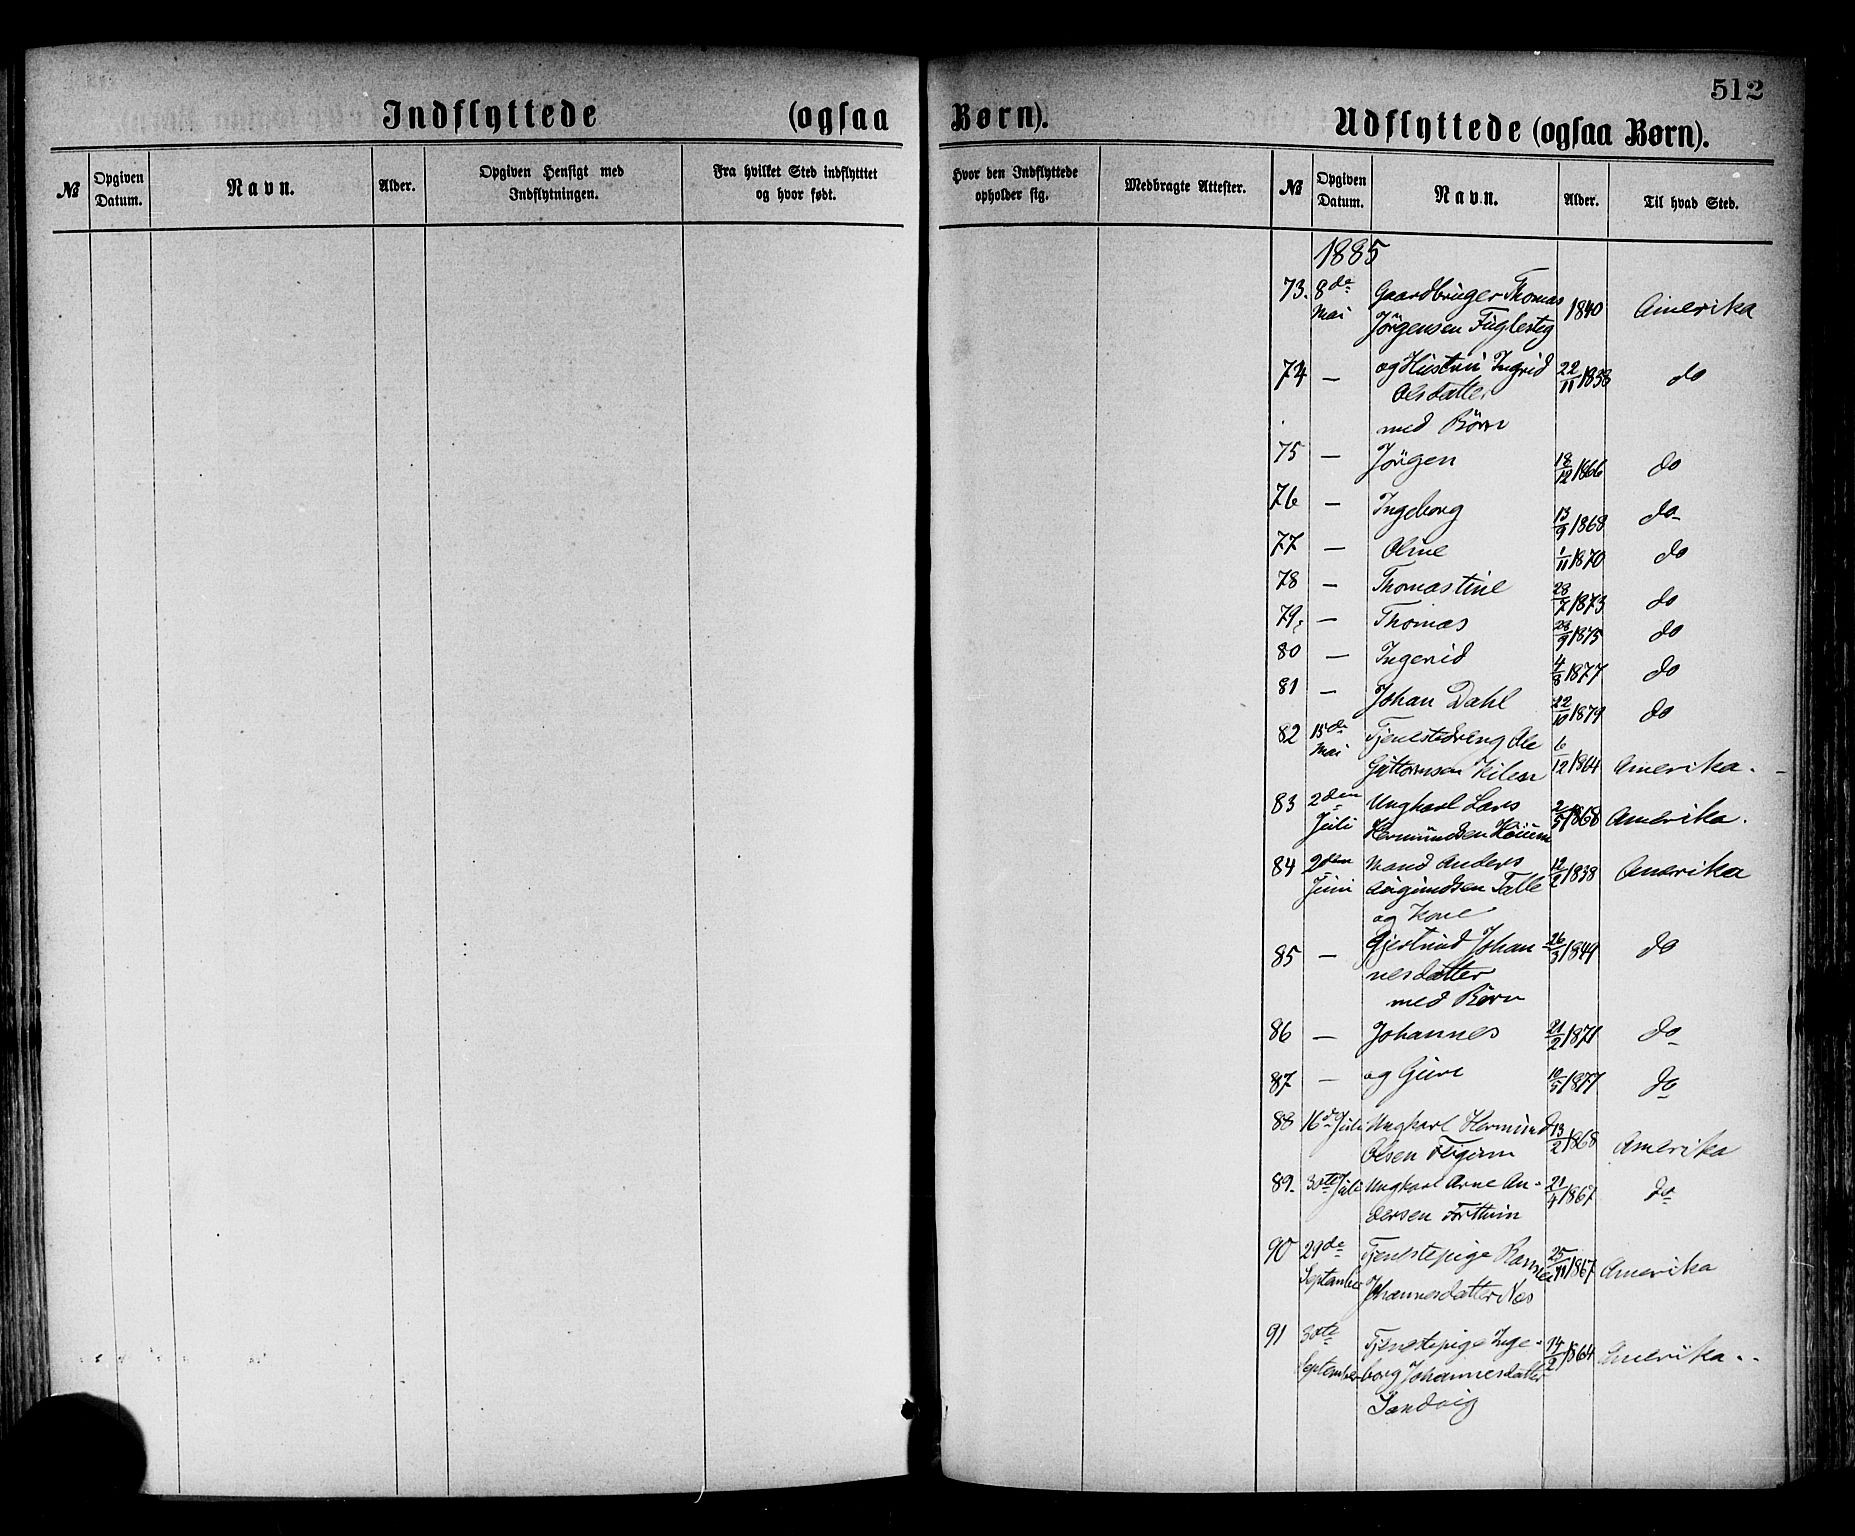 512
Indflyttede (ogsaa Børn).
Udflyttede (ogsaa Børn).
№ Opgiven Datum. Navn. Alder. Opgiven Hensigt med Indflytningen. Fra hvilket Sted indflytttet og hvor født. Hvor den Indflyttede opholder sig. Medbragte Attester. № Opgiven Datum. Navn. Alder. Til hvad Sted.
1885
73. 8de Mai Gaardbruger Thomas 1840 Amerika
Jörgensen Fuglesteg
74 — og Hustru Ingrid 22/11 1838 do
Olsdatter
med Börn
75 — Jörgen 18/12 1866 do
76 — Ingeborg 13/9 1868 do
77 — Oline 1/11 1870 do
78 — Thomastine 28/7 1873 do
79. — Thomas 28/9 1875 do
80 — Ingerid 4/8 1877 do
81 — Johan Dahl 22/10 1879 do
82 15de Mai Tjenestedreng Ole 6/12 1864 Amerika.
Guttormsen Kilen
83 2den Juli Ungkarl Lars 2/5 1868 Amerika.
Hermundsen
84 2den Juni Mand Anders 12/2 1838 Amerika
og Kone
85 — Gjertrud Johan- 26/3 1849 do
nesdatter
med Børn
86 — Johannes 21/2 1871 do
87 — og Guri 10/5 1877 do
88 16de Juli Ungkarl Hermund 13/2 1868 Amerika
Olsen
89. 30te Juli Ungkarl Arne An- 21/4 1867 do
dersen Forthun
90 29de September Tjenestepige 25/11 1867 Amerika
Johannesdatter Næs
91 30te September Tjenestepige Inge- 14/2 1864 Amerika..
borg Johannesdatter
Sandvig